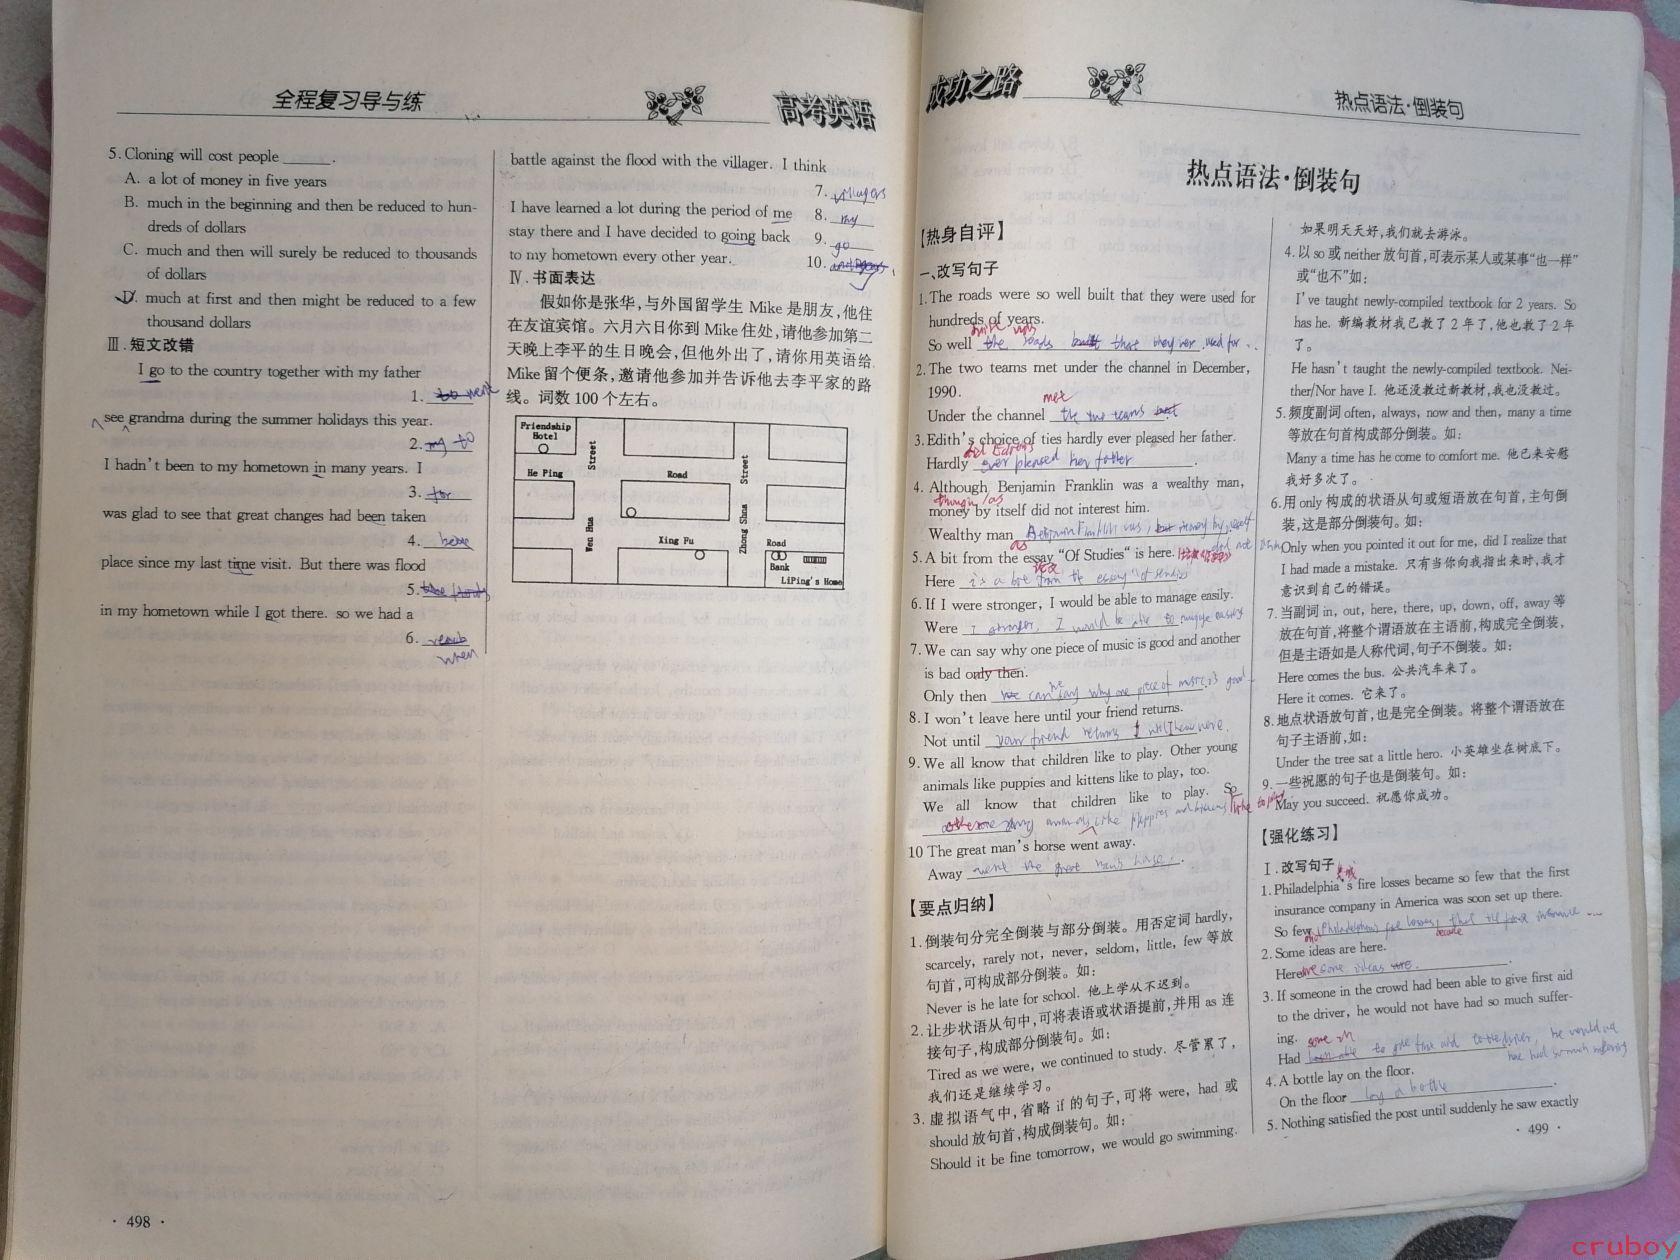 全程复习导与练
高考英语
5. Cloning will cost people ______.
A. a lot of money in five years
B. much in the beginning and then be reduced to hun-
dreds of dollars
C. much and then will surely be reduced to thousands
of dollars
D. much at first and then might be reduced to a few
thousand dollars
Ⅲ.短文改错
I go to the country together with my father
1. went
see grandma during the summer holidays this year.
2. my to
I hadn't been to my hometown in many years. I
3. for
was glad to see that great changes had been taken
4. been
place since my last time visit. But there was flood
5.
in my hometown while I got there. so we had a
6.
when
battle against the flood with the villager. I think
7. villagers
I have learned a lot during the period of me
8. my
stay there and I have decided to going back
9. go
to my hometown every other year.
10.
Ⅳ.书面表达
假如你是张华,与外国留学生 Mike 是朋友,他住
在友谊宾馆。六月六日你到 Mike 住处,请他参加第二
天晚上李平的生日晚会,但他外出了,请你用英语给
Mike 留个便条,邀请他参加并告诉他去李平家的路
线。词数 100 个左右。
Friendship
Hotel
Street
Street
He Ping
Road
Wen Hua
Zhong Shna
Xing Fu
Road
Bank
LiPing's Home
· 498 ·
成功之路
热点语法·倒装句
热点语法·倒装句
【热身自评】
一、改写句子
1. The roads were so well built that they were used for
hundreds of years.
So well the roads built that they were used for..
2. The two teams met under the channel in December,
1990.
met
Under the channel the two teams
3. Edith's choice of ties hardly ever pleased her father.
did Edith's
Hardly ever pleased her father.
4. Although Benjamin Franklin was a wealthy man,
money by itself did not interest him.
though/as
Wealthy man Benjamin Franklin was, money by itself
did not
as
5. A bit from the essay "Of Studies" is here.
Here is a bit from the essay "of studies
6. If I were stronger, I would be able to manage easily.
Were I stronger, I would be able to manage easily
7. We can say why one piece of music is good and another
is bad only then.
Only then can we say why one piece of music is good
8. I won't leave here until your friend returns.
Not until your friend returns I will leave here.
9. We all know that children like to play. Other young
animals like puppies and kittens like to play, too.
We all know that children like to play. So
other young animals like puppies and kittens like to play
10 The great man's horse went away.
Away went the great man's horse.
【要点归纳】
1. 倒装句分完全倒装与部分倒装。用否定词 hardly,
scarcely, rarely not, never, seldom, little, few 等放
句首,可构成部分倒装。如:
Never is he late for school. 他上学从不迟到。
2. 让步状语从句中,可将表语或状语提前,并用 as 连
接句子,构成部分倒装句。如:
Tired as we were, we continued to study. 尽管累了,
我们还是继续学习。
3. 虚拟语气中,省略 if 的句子,可将 were, had 或
should 放句首,构成倒装句。如:
Should it be fine tomorrow, we would go swimming.
如果明天天好,我们就去游泳。
4. 以 so 或 neither 放句首,可表示某人或某事“也一样”
或“也不”如:
I've taught newly-compiled textbook for 2 years. So
has he. 新编教材我已教了 2 年了,他也教了 2 年
了。
He hasn't taught the newly-compiled textbook. Nei-
ther/Nor have I. 他还没教过新教材,我也没教过。
5. 频度副词 often, always, now and then, many a time
等放在句首构成部分倒装。如:
Many a time has he come to comfort me. 他已来安慰
我好多次了。
6. 用 only 构成的状语从句或短语放在句首,主句倒
装,这是部分倒装句。如:
Only when you pointed it out for me, did I realize that
I had made a mistake. 只有当你向我指出来时,我才
意识到自己的错误。
7. 当副词 in, out, here, there, up, down, off, away 等
放在句首,将整个谓语放在主语前,构成完全倒装,
但是主语如是人称代词,句子不倒装。如:
Here comes the bus. 公共汽车来了。
Here it comes. 它来了。
8. 地点状语放句首,也是完全倒装。将整个谓语放在
句子主语前,如:
Under the tree sat a little hero. 小英雄坐在树底下。
9. 一些祝愿的句子也是倒装句。如:
May you succeed. 祝愿你成功。
【强化练习】
Ⅰ.改写句子
1. Philadelphia's fire losses became so few that the first
insurance company in America was soon set up there.
So few did Philadelphia's fire losses become that the first insurance ...
2. Some ideas are here.
Here are some ideas
3. If someone in the crowd had been able to give first aid
to the driver, he would not have had so much suffer-
ing.
Had been able to give first aid to the driver, he would not
have had so much suffering
4. A bottle lay on the floor.
On the floor lay a bottle
5. Nothing satisfied the post until suddenly he saw exactly
· 499 ·
cruboy